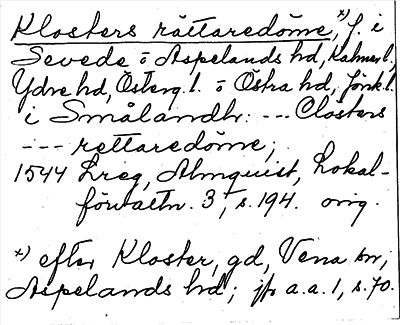 Klosters rättaredöme,*) f. i
Sevede o Aspelands hd, Kalmar l.
Ydre hd, Österg. l. o Östra hd, Jönk. l.
i Smålandh: --- Closters
--- rettaredöme,
1544 Lreg, Almquist, Lokal-
förvaltn. 3, s. 194. orig.
*) efter Kloster, gd, Vena sn,
Aspelands hd; jfr a.a. 1, s. 70.